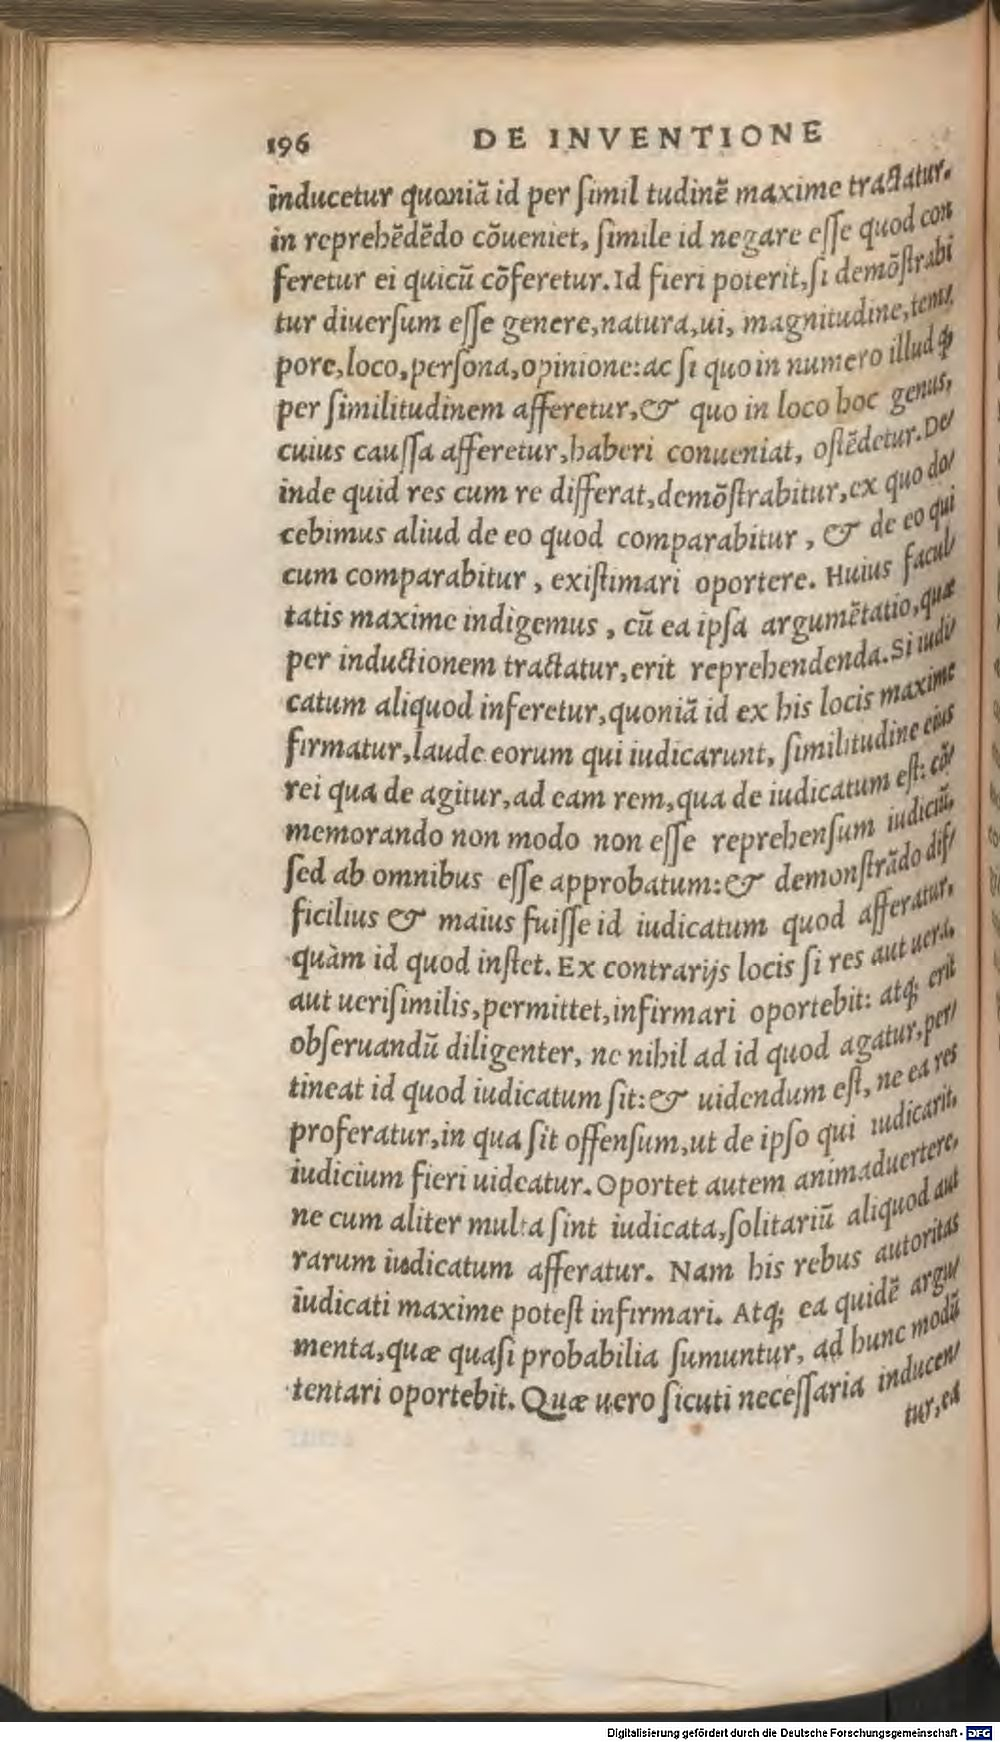 196 DE INVENTIONE
inducetur quoniã id per ſimil tudinẽ maxime tractatur.
in reprehẽdẽdo cõueniet, ſimile id negare eſſe quod con
feretur ei quicũ cõferetur. Id fieri poterit, ſi demõſtrabi
tur diuerſum eſſe genere, natura, ui, magnitudine, tem/
pore, loco, perſona, opinione: ac ſi quo in numero illud ꝙ
per ſimilitudinem afferetur, & quo in loco hoc genus,
cuius cauſſa afferetur, haberi conueniat, oſtẽdetur. De/
inde quid res cum re differat, demõſtrabitur, ex quo do/
cebimus aliud de eo quod comparabitur, & de eo qui
cum comparabitur, exiſtimari oportere. Huius facul/
tatis maxime indigemus, cũ ea ipſa argumẽtatio, quæ
per inductionem tractatur, erit reprehendenda. Si iudi/
catum aliquod inferetur, quoniã id ex his locis maxime
firmatur, laude eorum qui iudicarunt, ſimilitudine eius
rei qua de agitur, ad eam rem, qua de iudicatum eſt: cõ/
memorando non modo non eſſe reprehenſum iudiciũ,
ſed ab omnibus eſſe approbatum: & demonſtrãdo dif/
ficilius & maius fuiſſe id iudicatum quod afferatur,
quàm id quod inſtet. Ex contrarijs locis ſi res aut uera,
aut ueriſimilis, permittet, infirmari oportebit: atq; erit
obſeruandũ diligenter, ne nihil ad id quod agatur, per/
tineat id quod iudicatum ſit: & uidendum eſt, ne ea res
proferatur, in qua ſit offenſum, ut de ipſo qui iudicarit,
iudicium fieri uideatur. Oportet autem animaduertere,
ne cum aliter multa ſint iudicata, ſolitariũ aliquod aut
rarum iudicatum afferatur. Nam his rebus autoritas
iudicati maxime poteſt infirmari. Atq; ea quidẽ argu/
menta, quæ quaſi probabilia ſumuntur, ad hunc modũ
tentari oportebit. Quæ uero ſicuti neceſſaria inducen/
tur, ea
Digitalisierung gefördert durch die Deutsche Forschungsgemeinschaft - DFG